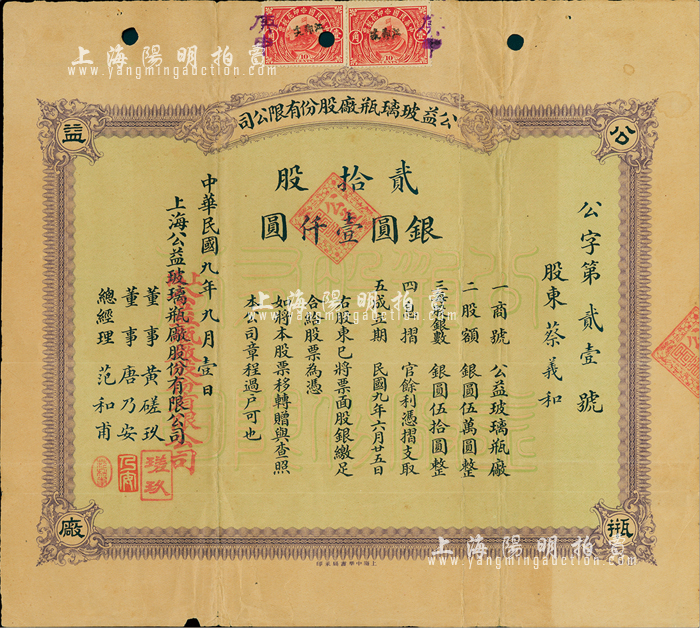 上海陽明拍賣
www.yangmingauction.com
公益玻璃瓶廠股份有限公司
公
益
瓶
廠
貳拾股
銀圓壹仟圓
公字第貳壹號
股東蔡義和
一商號 公益玻璃瓶廠
二股額 銀圓伍萬圓整
三每股銀數 銀圓伍拾圓整
四息摺 官餘利憑摺支取
五成立期 民國九年六月廿五日
右股東已將票面股銀繳足
合給股票為憑
如將本股票移轉贈與查照
本公司章程過戶可也
中華民國九年九月壹日
上海公益玻璃瓶廠股份有限公司
董事 黃磋玖
董事 唐乃安
總經理 范和甫
上海中華書局承印
上海陽明拍賣
www.yangmingauction.com
上海陽明拍賣
www.yangmingauction.com